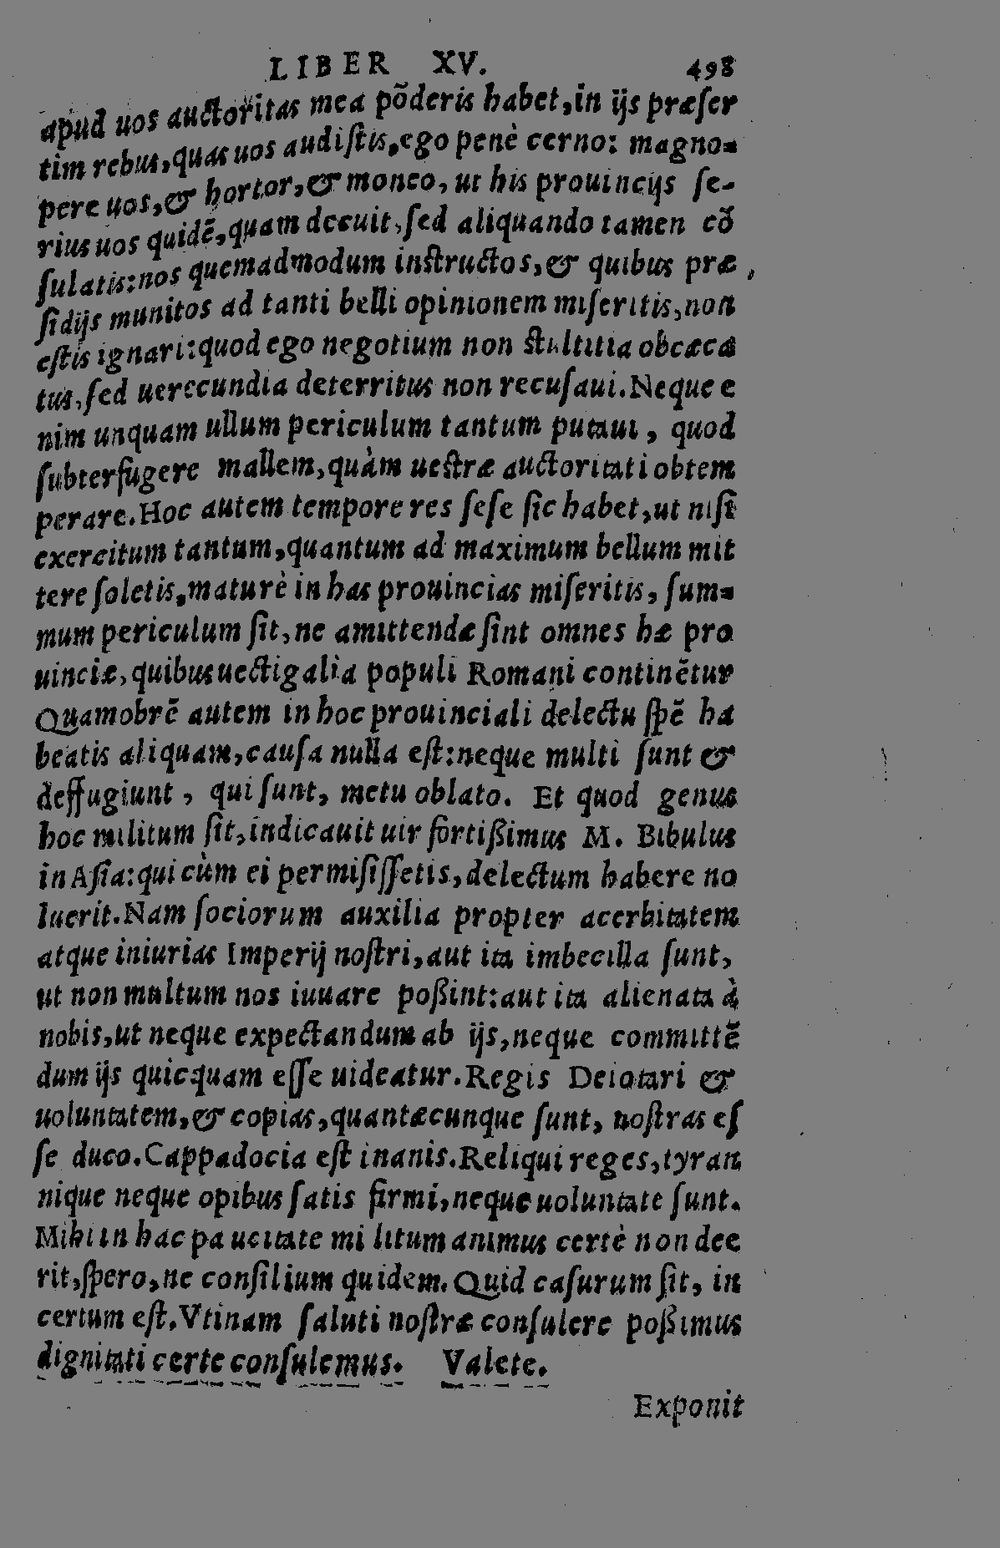 LIBER XV. 498
apud uos auctoritas mea põderis habet, in ijs præser
tim rebus, quas uos audistis, ego penè cerno: magno-
pere uos, & hortor, & moneo, ut his prouincijs se-
rius uos quidẽ, quam decuit, sed aliquando tamen cõ
sulatis: nos quemadmodum instructos, & quibus præ
sidijs munitos ad tanti belli opinionem miseritis, non
estis ignari: quod ego negotium non stultitia obcæca
tus, sed uerecundia deterritus non recusaui. Neque e
nim unquam ullum periculum tantum putaui, quod
subterfugere mallem, quàm uestræ auctoritati obtem
perare. Hoc autem tempore res sese sic habet, ut nisi
exercitum tantum, quantum ad maximum bellum mit
tere soletis, maturè in has prouincias miseritis, sum-
mum periculum sit, ne amittendæ sint omnes hæ pro
uinciæ, quibus uectigalia populi Romani continẽtur
Quamobrẽ autem in hoc prouinciali delectu spẽ ha
beatis aliquam, causa nulla est: neque multi sunt &
deffugiunt, qui sunt, metu oblato. Et quod genus
hoc militum sit, indicauit uir fortißimus M. Bibulus
in Asia: qui cùm ei permisissetis, delectum habere no
luerit. Nam sociorum auxilia propter acerbitatem
atque iniurias Imperij nostri, aut ita imbecilla sunt,
ut non multum nos iuuare poßint: aut ita alienata à
nobis, ut neque expectandum ab ijs, neque committẽ
dum ijs quicquam esse uideatur. Regis Deiotari &
uoluntatem, & copias, quantæcunque sunt, nostras es
se duco. Cappadocia est inanis. Reliqui reges, tyran
nique neque opibus satis firmi, neque uoluntate sunt.
Mihi in hac paucitate militum animus certè non dee
rit, spero, ne consilium quidem. Quid casurum sit, in
certum est. Vtinam saluti nostræ consulere poßimus
dignitati certe consulemus. Valete.
Exponit